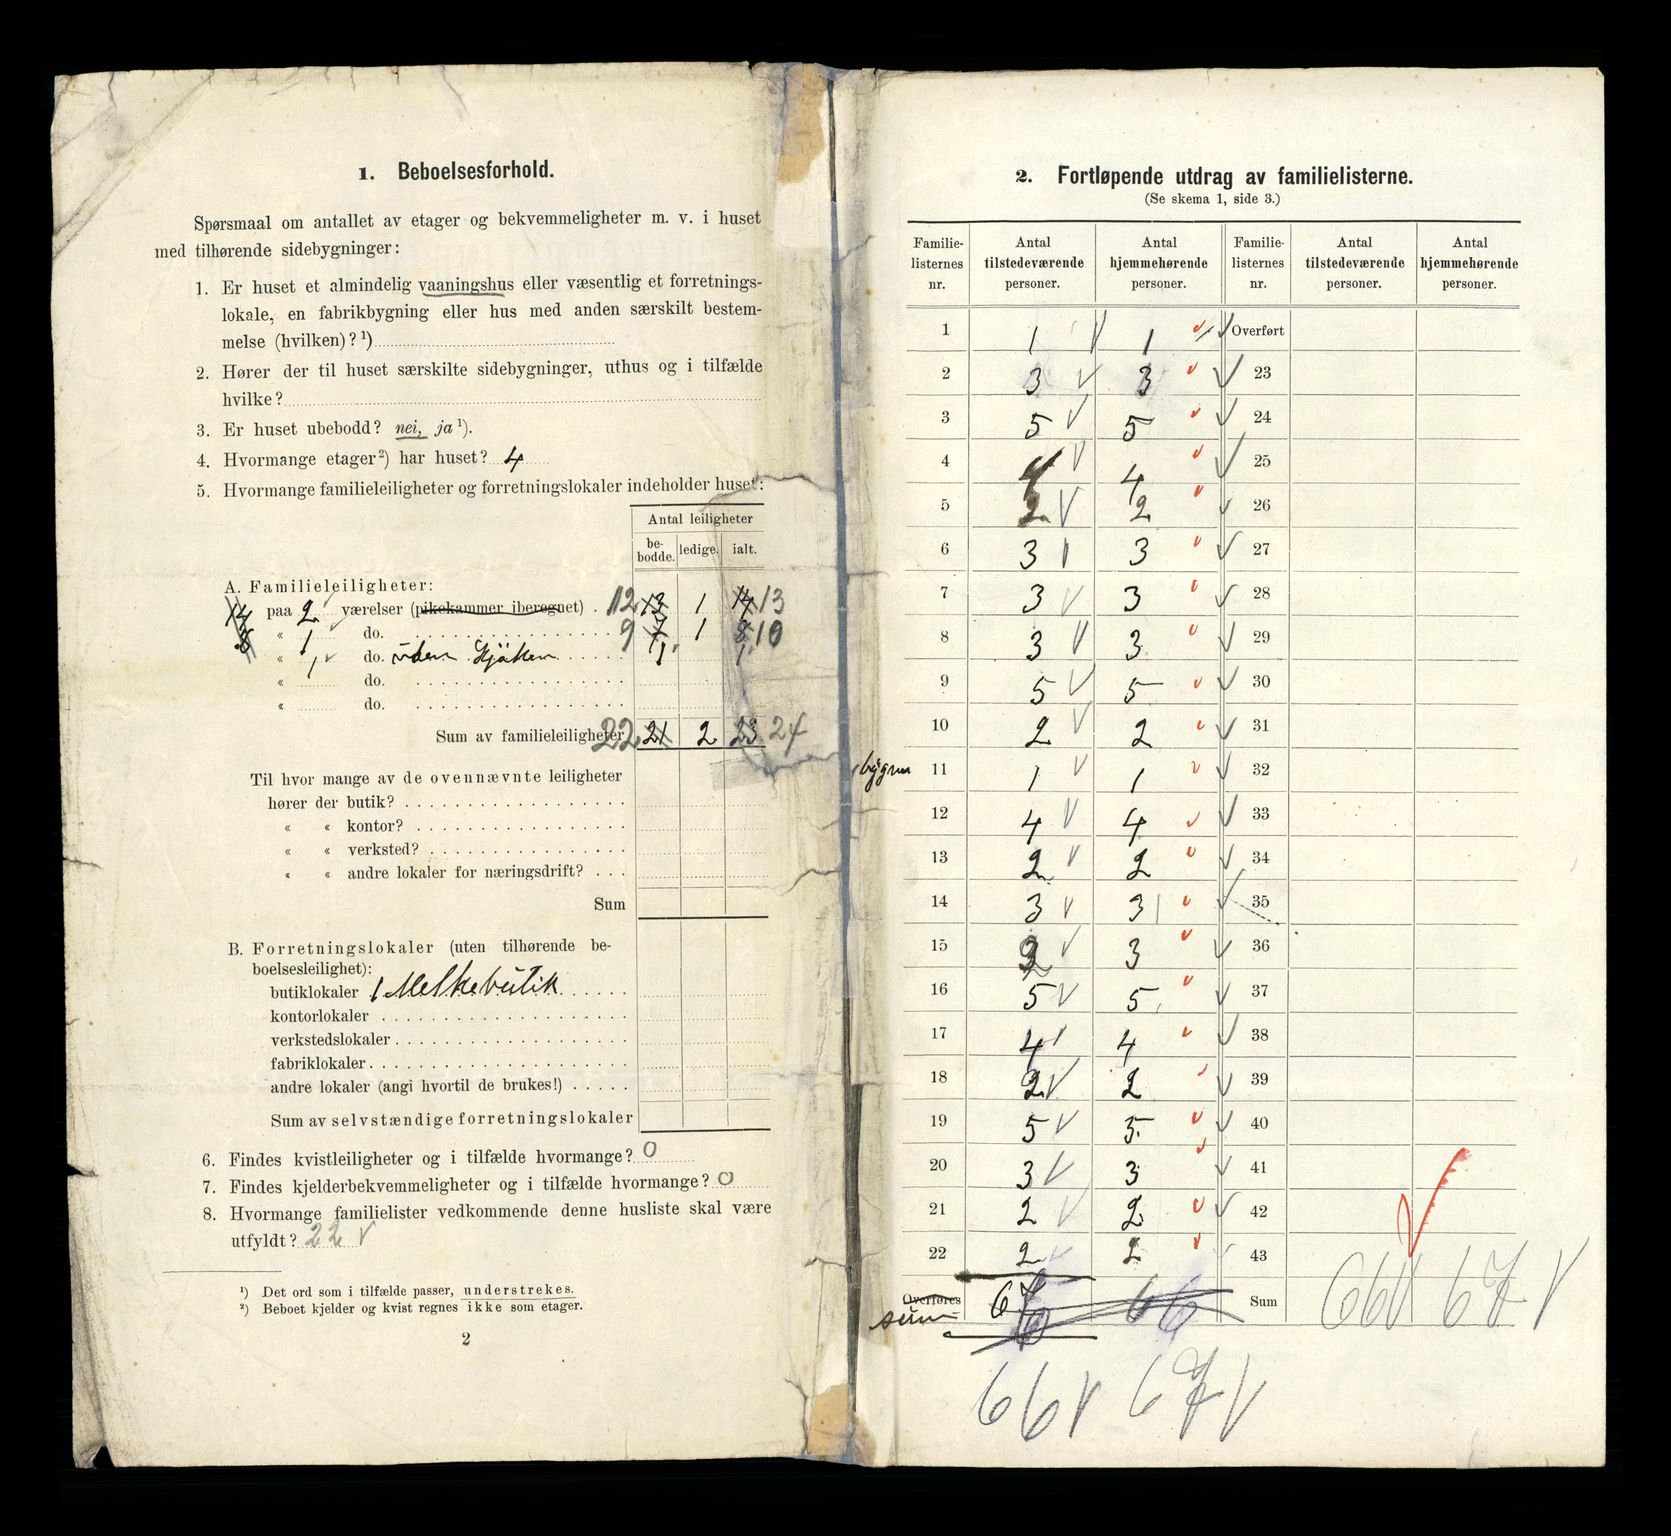 1. Beboelsesforhold.
Spørsmaal om antallet av etager og bekvemmeligheter m. v. i huset
med tilhørende sidebygninger:
1. Er huset et almindelig vaaningshus eller væsentlig et forretnings-
lokale, en fabrikbygning eller hus med anden særskilt bestem-
melse (hvilken)? ¹)
2. Hører der til huset særskilte sidebygninger, uthus og i tilfælde
hvilke?
3. Er huset ubebodd? nei, ja ¹).
4. Hvormange etager ²) har huset? 4
5. Hvormange familieleiligheter og forretningslokaler indeholder huset:
Antal leiligheter
be-bodde. ledige. ialt.
A. Familieleiligheter:
14 paa 2 værelser (pikekammer iberegnet) . 12 13 1 14 13
8 « 1 do. 9 7 1 8 10
« 1 do. uden Kjøken 1 1
« do.
« do.
Sum av familieleiligheter 22 21 2 23 24
Til hvor mange av de ovennævnte leiligheter
hører der butik?
« « kontor?
« « verksted?
« « andre lokaler for næringsdrift?
Sum
B. Forretningslokaler (uten tilhørende be-
boelsesleilighet):
butiklokaler 1 Melkebutik
kontorlokaler
verkstedslokaler
fabriklokaler
andre lokaler (angi hvortil de brukes!)
Sum av selvstændige forretningslokaler
6. Findes kvistleiligheter og i tilfælde hvormange? 0
7. Findes kjelderbekvemmeligheter og i tilfælde hvormange? 0
8. Hvormange familielister vedkommende denne husliste skal være
utfyldt? 22 V
¹) Det ord som i tilfælde passer, understrekes.
²) Beboet kjelder og kvist regnes ikke som etager.
2
2. Fortløpende utdrag av familielisterne.
(Se skema 1, side 3.)
Familie-listernes nr. Antal tilstedeværende personer. Antal hjemmehørende personer. Familie-listernes nr. Antal tilstedeværende personer. Antal hjemmehørende personer.
1 1 1 Overført
2 3 3 23
3 5 5 24
4 4 4 25
5 2 2 26
6 3 3 27
7 3 3 28
8 3 3 29
9 5 5 30
10 2 2 31
11 1 1 32
12 4 4 33
13 2 2 34
14 3 3 35
15 3 36
16 5 5 37
17 4 4 38
18 2 2 39
19 5 5 40
20 3 3 41
21 2 2 42
22 2 2 43
Overføres 66 Sum 66 V 67 V
sum
66 V 67 V